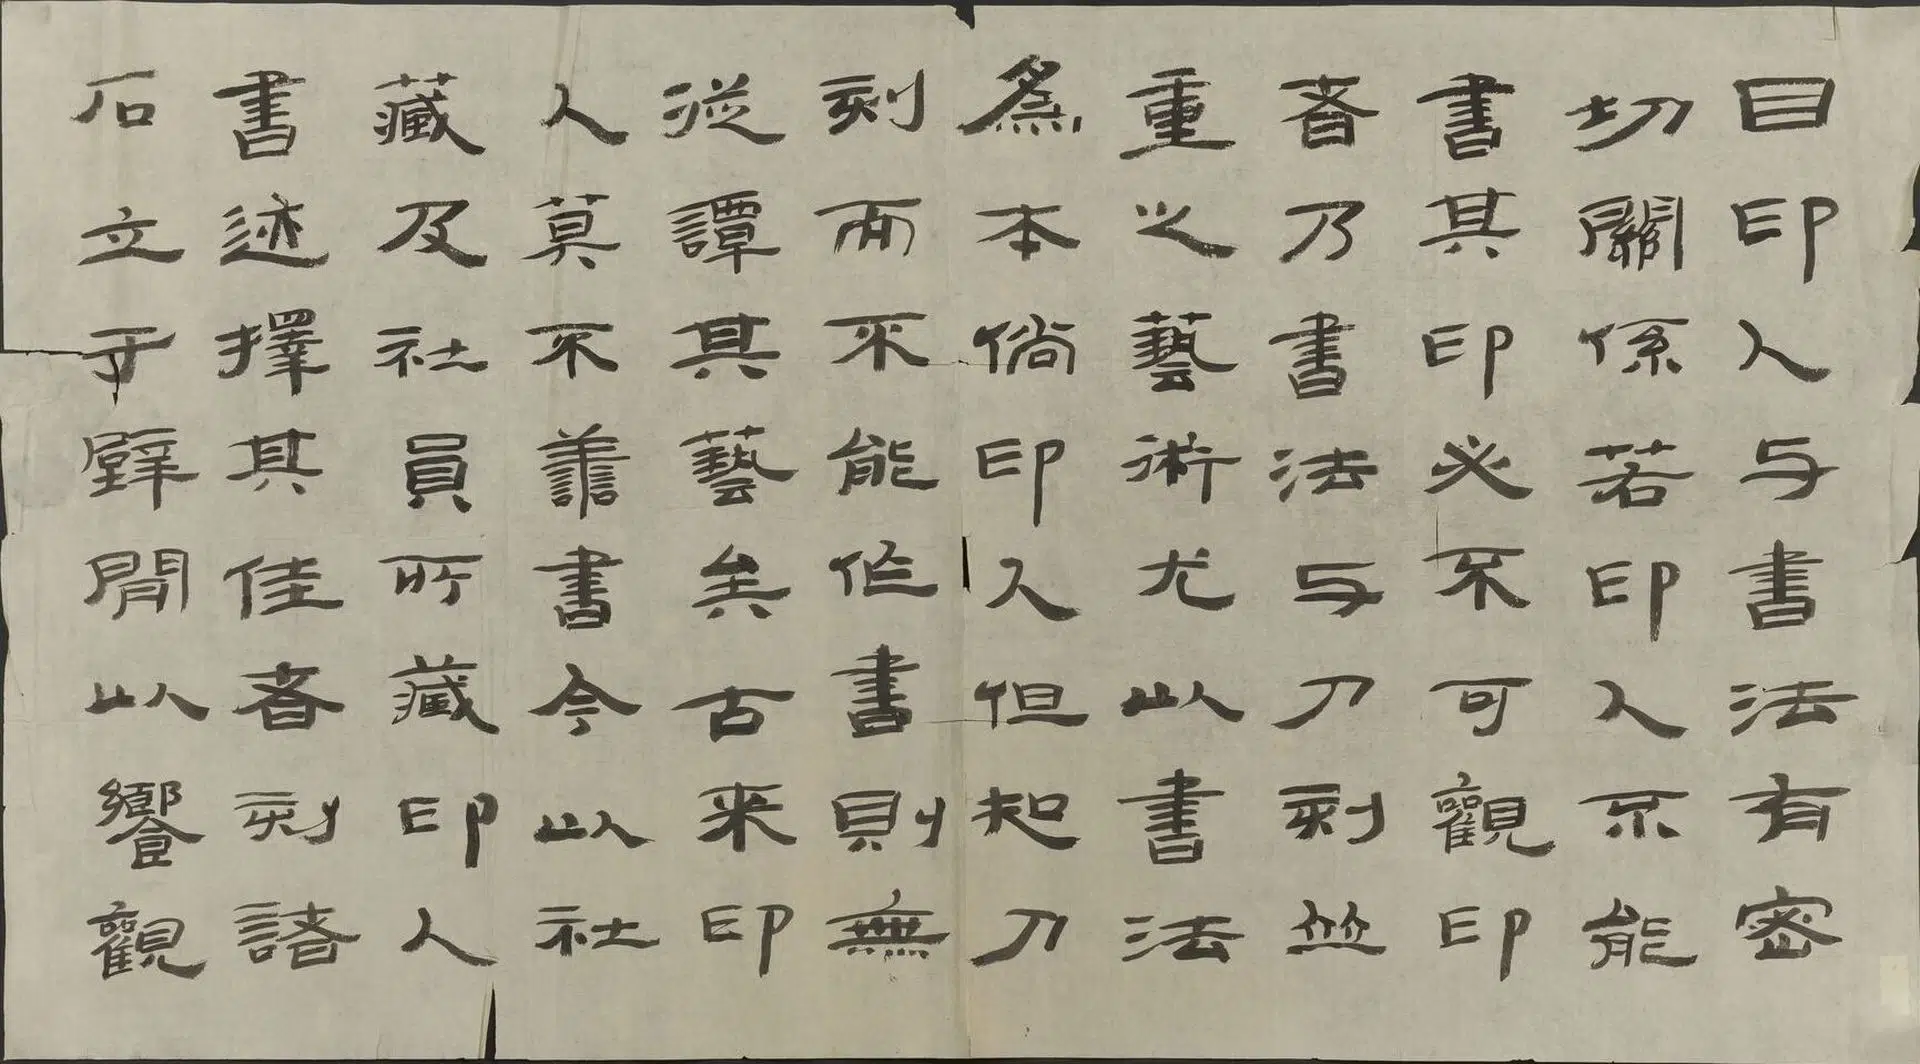 目印人与書法有密
切關係若印人不能
書其印必不可觀印
者乃書法与刀刻並
重之藝術尤以書法
為本倘印人但知刀
刻而不能作書則無
從譚其藝矣古來印
人莫不善書今以社
藏及社員所藏印人
書述擇其佳者刻諸
石立于壁間以饗觀